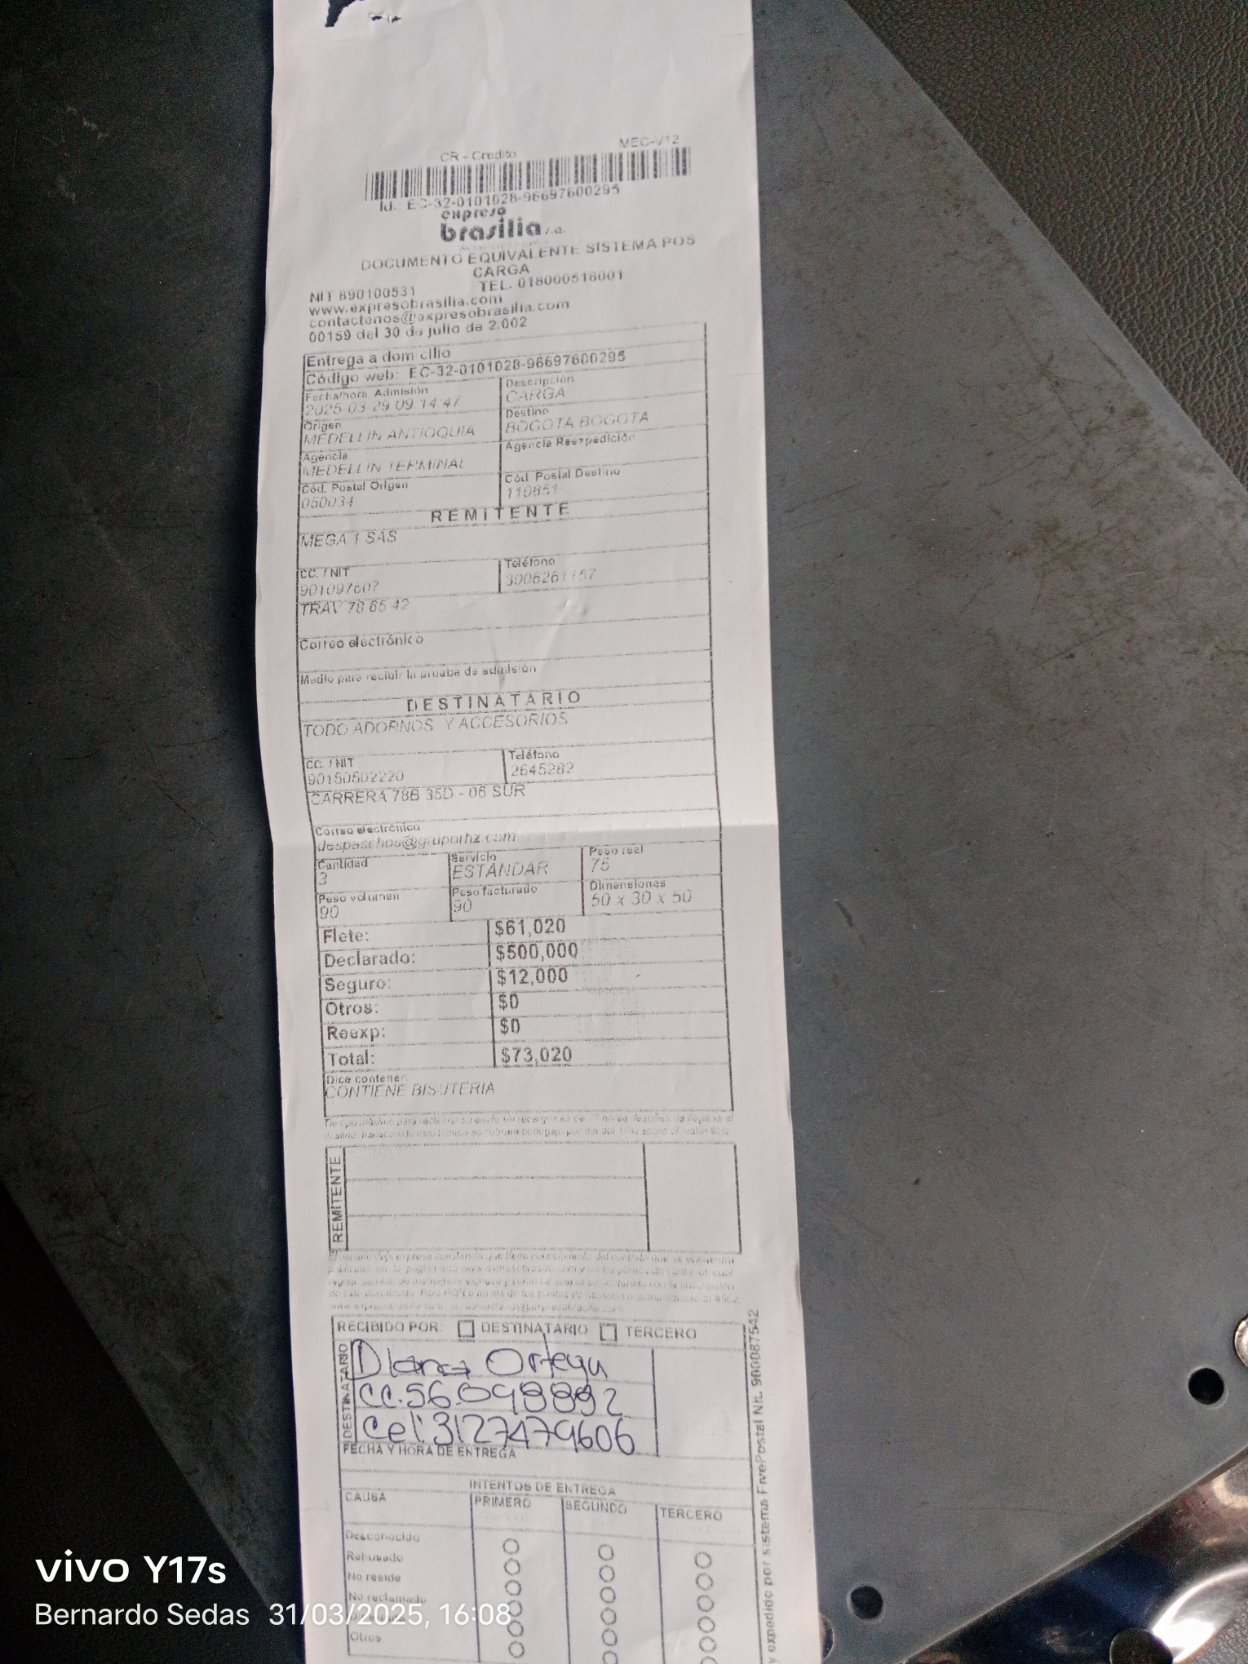 CR - Credito MEC-V12
Id.: EC-32-0101028-96697600295
expreso
brasilia s.a.
DOCUMENTO EQUIVALENTE SISTEMA POS
CARGA
NIT 890100531 TEL. 018000518001
www.expresobrasilia.com
contactenos@expresobrasilia.com
00159 del 30 de julio de 2.002
Entrega a dom cilio
Código web: EC-32-0101028-96697600295
Fecha/hora Admisión Descripción
2025-03-29 09 14 47 CARGA
Origen Destino
MEDELLIN ANTIOQUIA BOGOTA BOGOTA
Agencia Agencia Reexpedición
MEDELLIN TERMINAL
Cód. Postal Origen Cód. Postal Destino
050034 110851
REMITENTE
MEGA 1 SAS
CC. / NIT Teléfono
901097607 3006261157
TRAV 78 65 42
Correo electrónico
Medio para recibir la prueba de admisión
DESTINATARIO
TODO ADORNOS Y ACCESORIOS
CC. / NIT Teléfono
90150502220 2645282
CARRERA 78B 35D - 06 SUR
Correo electrónico
despachos@gruporhz.com
Cantidad Servicio Peso real
3 ESTANDAR 75
Peso volumen Peso facturado Dimensiones
90 90 50 x 30 x 50
Flete: $61,020
Declarado: $500,000
Seguro: $12,000
Otros: $0
Reexp: $0
Total: $73,020
Dice contener
CONTIENE BISUTERIA
REMITENTE
RECIBIDO POR: DESTINATARIO TERCERO
DESTINATARIO
Diana Ortega
CC.56.098892
Cel:3127479606
FECHA Y HORA DE ENTREGA
INTENTOS DE ENTREGA
CAUSA PRIMERO SEGUNDO TERCERO
Desconocido
Rehusado
No reside
No reclamado
Otros
y expedido por sistema FivePostal Nit. 900087542
vivo Y17s
Bernardo Sedas 31/03/2025, 16:08